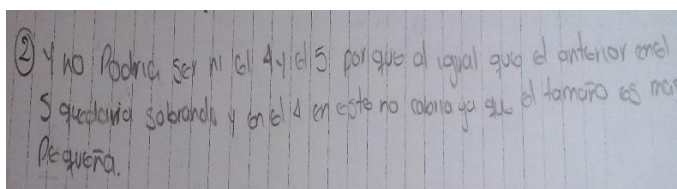 ② y no Podria ser ni el 4 y el 5 porque al igual que el anterior en el
5 quedaria sobrando y en el 4 en este no cabria ya que el tamaño es mas
Pequeña.